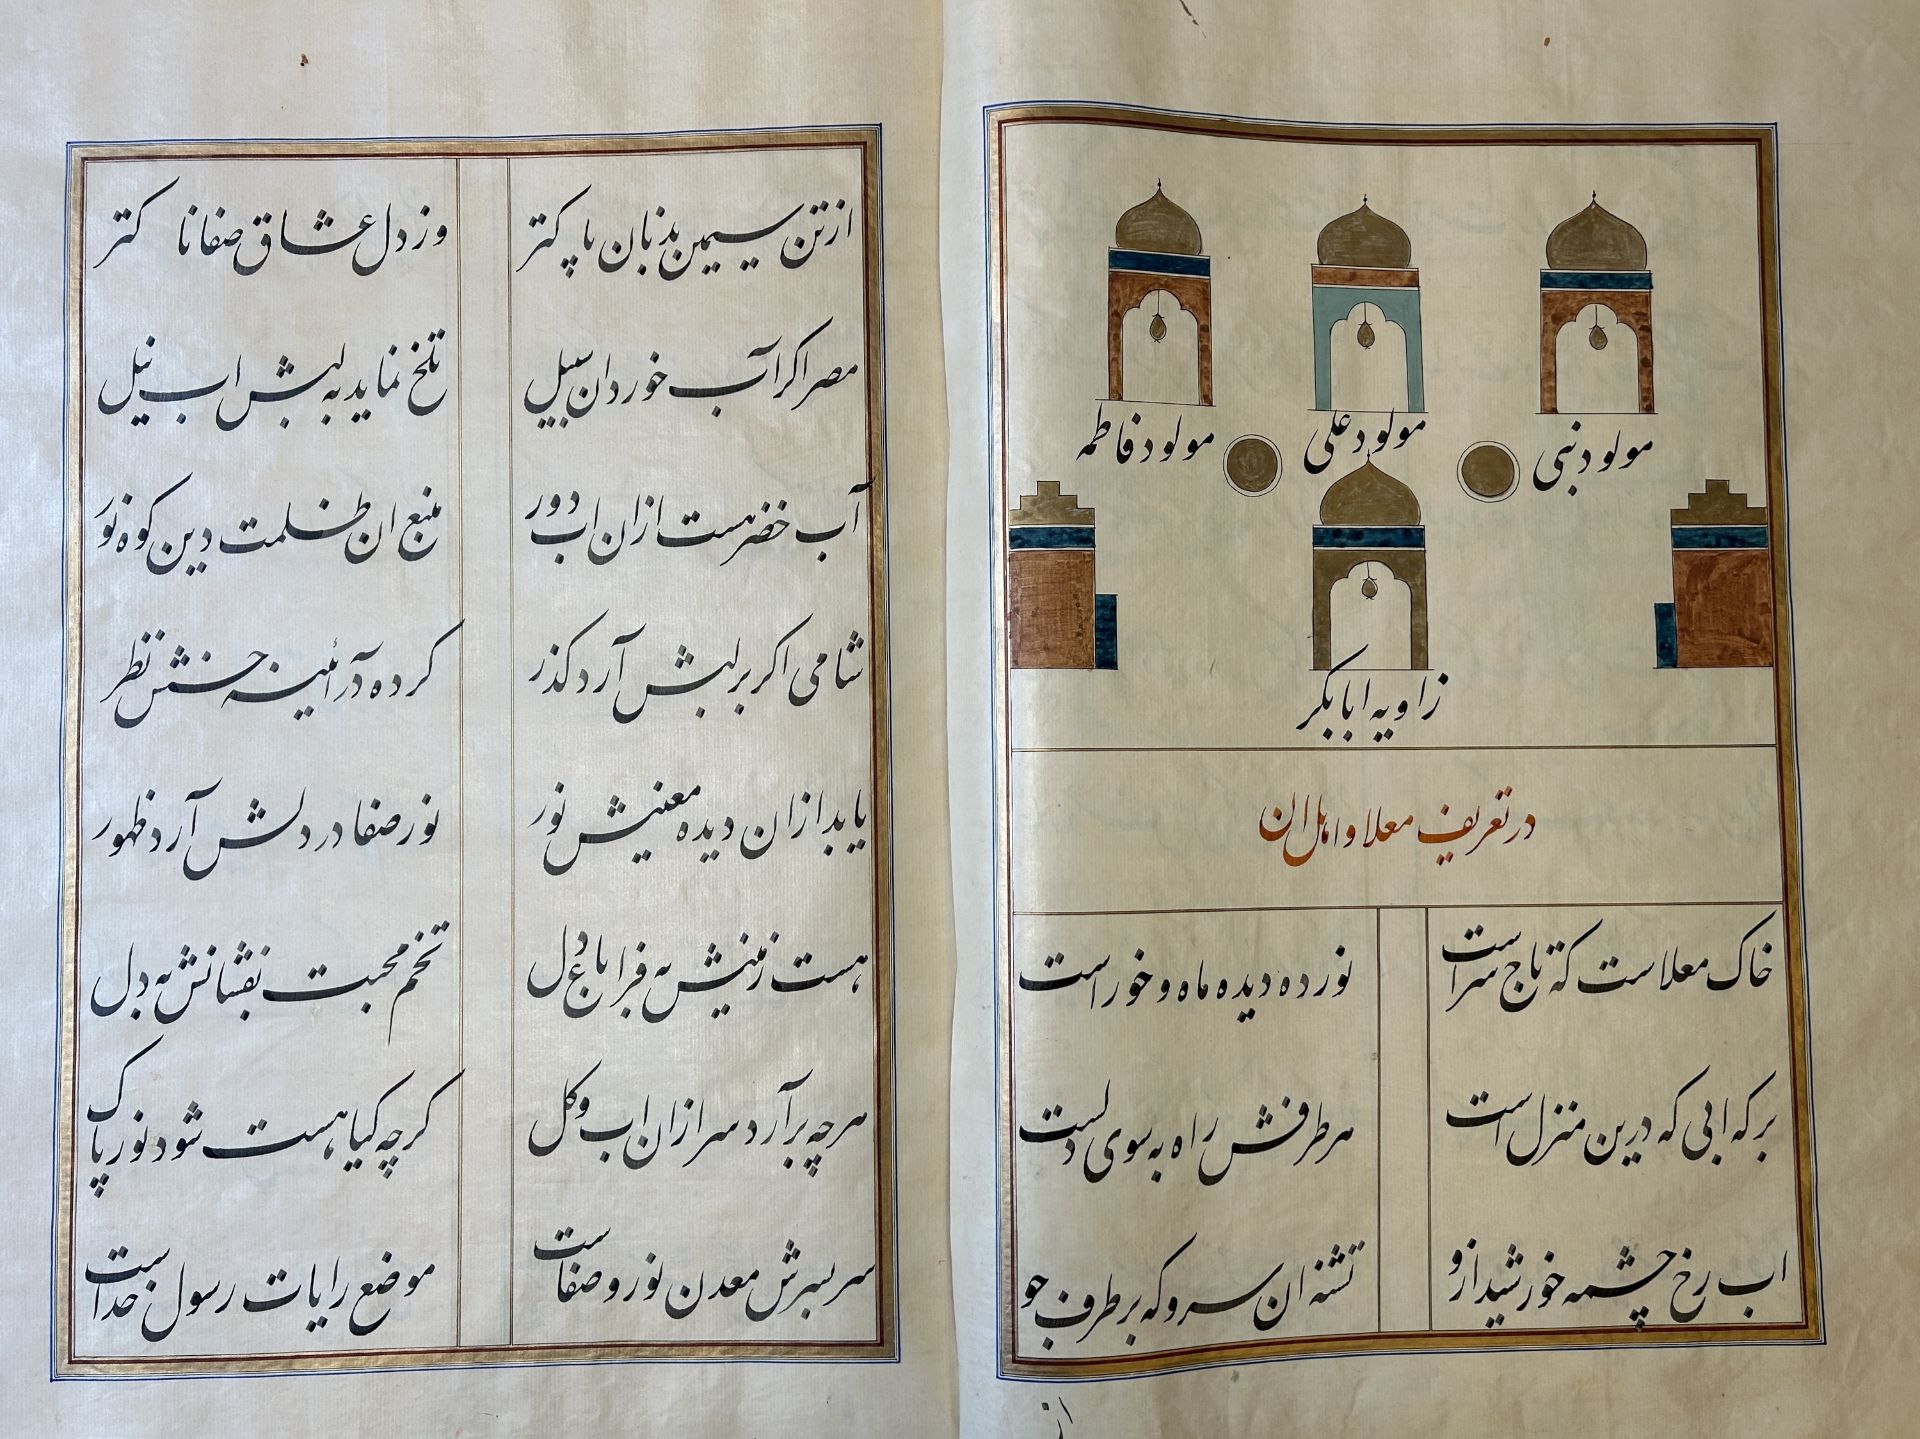 مولود نبی
مولود علی
مولود فاطمه
زاویه ابابکر
در تعریف معلا و اهل ان
خاک معلاست که تاج سراست نور ده دیده ماه و خور است
برکه ابی که درین منزل است هر طرفش راه به سوی دلست
اب رخ چشمه خورشید ازو تشنه ان سرو که بر طرف جو
از
از تن سیمین بدنان پاکتر وز دل عشاق صفاناکتر
مصر اکر آب خورد ان سبیل تلخ نماید به لبش اب نیل
آب خضر هست ازان اب دور منبع ان ظلمت و این کوه نور
شامی اکر بر لبش آرد کذر کرده در آئینه حسنش نظر
یابد ازان دیده معنیش نور نور صفا در دلش آرد ظهور
هست زمینش به فرا باغ دل تخم محبت بفشانش به دل
هرچه برآرد سر ازان اب و کل کرچه کیا هست شود نور پاک
سر بسرش معدن نور و صفاست موضع رایات رسول خداست